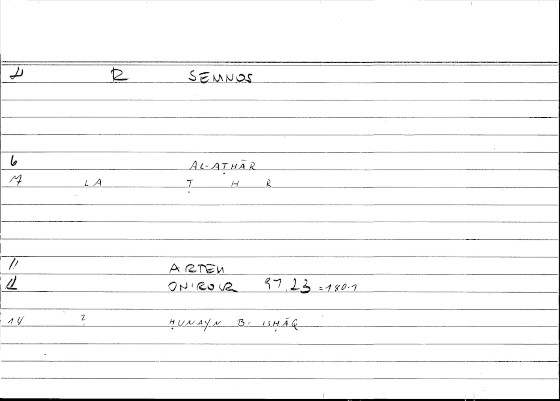 R SEMNOS
6 AL-AṬHĀR
7 LA Ṭ H R
11 ARTEM
12 ONIROCR 97,23 =180.1
14 ? ḤUNAYN B. ISḤĀQ